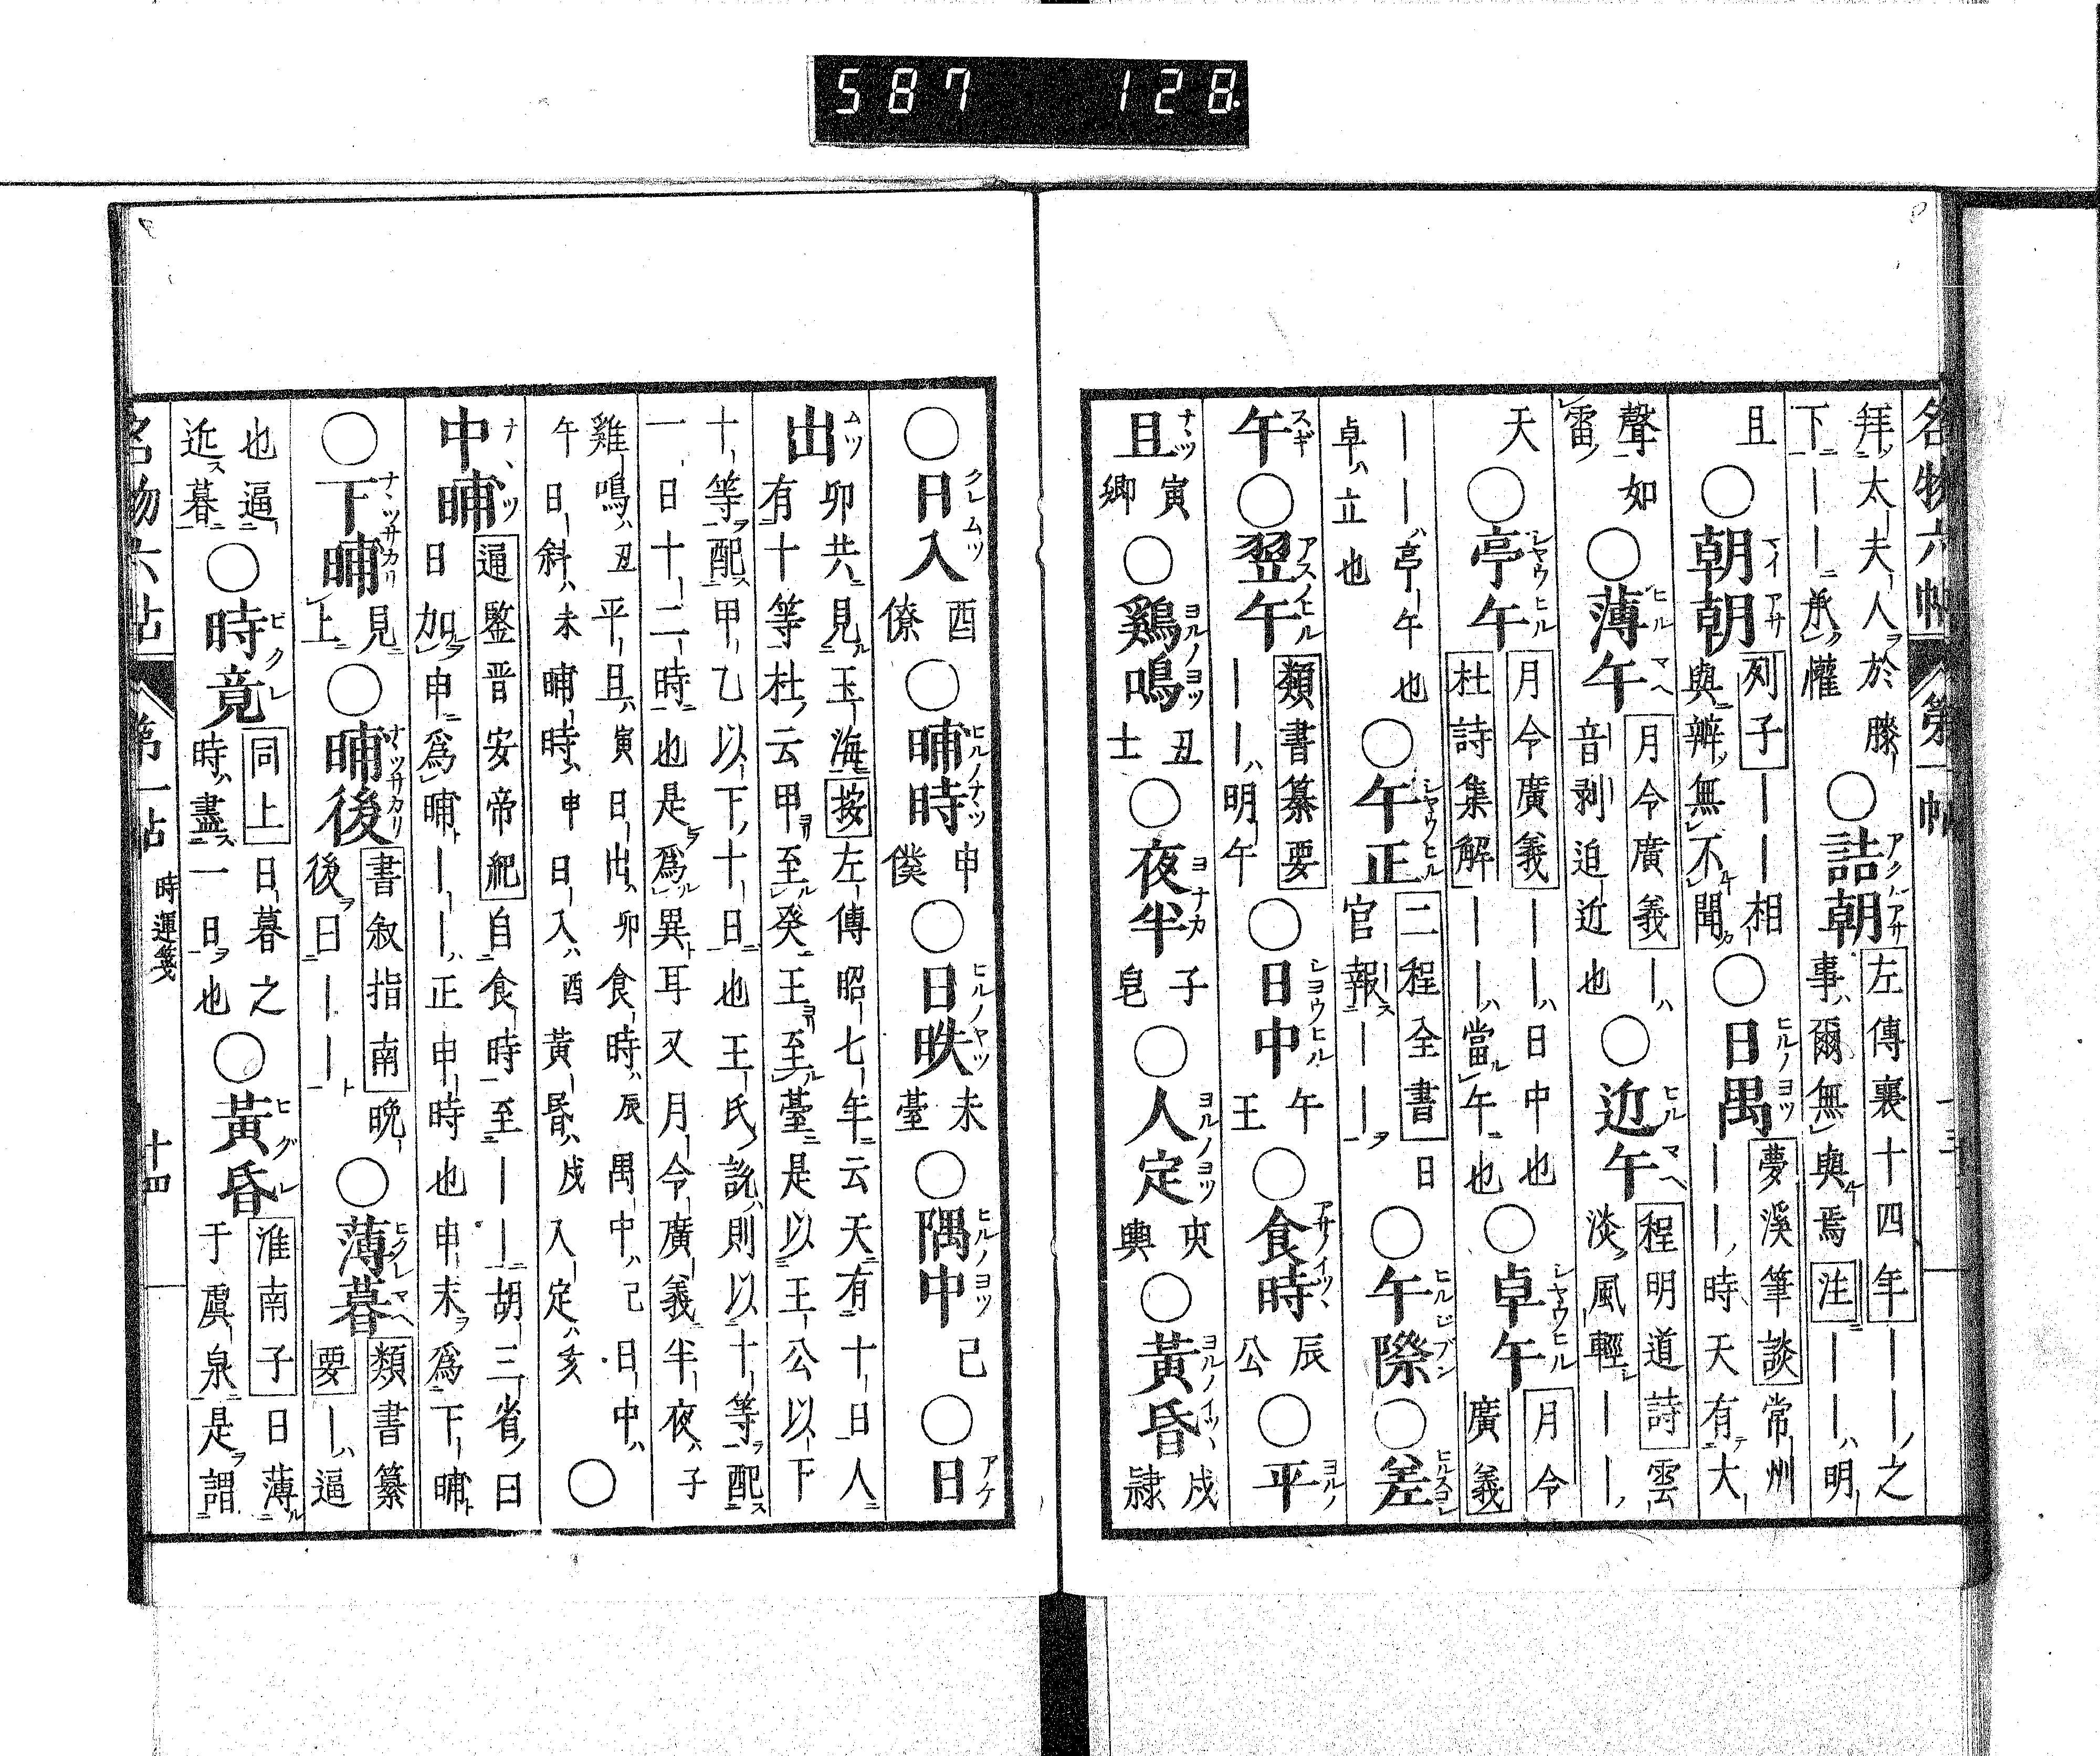 587 128.
名物六帖 第一帖 十三
拜太夫人於滕 ○詰朝 左傳襄十四年 ｜｜之
下｜｜承懽 事爾無與焉 注 ｜｜明
且 ○朝朝 列子 ｜｜相
與辨無不聞 ○日禺 夢溪筆談 常州
｜｜時天有大
聲如
雷 ○薄午 月令廣義 ｜
音剥迫近也 ○近午 程明道詩 雲
淡風輕｜｜
天 ○亭午 月令廣義 ｜｜日中也
杜詩集解 ｜｜當午也 ○卓午 月令
廣義
｜｜亭午也
卓立也 ○午正 二程全書 日
官報｜｜ ○午際 ○差
午 ○翌午 類書纂要
｜｜明午 ○日中 午王 ○食時 辰公 ○平
旦 寅卿 ○鷄鳴 丑士 ○夜半 子皂 ○人定 亥輿 ○黃昏 戌隷
○日入 酉僚 ○晡時 申僕 ○日昳 未臺 ○隅中 巳 ○日
出 卯共見玉海 按 左傳昭七年云天有十日人
有十等杜云甲至癸王至臺是以王公以下
十等配甲乙以下十日也王氏說則以十等配
一日十二時也是爲異耳又月令廣義半夜子
雞鳴丑平旦寅日出卯食時辰禺中巳日中
午日斜未晡時申日入酉黃昏戌人定亥 ○
中晡 通鑒晋安帝紀 自食時至｜｜胡三省曰
日加申爲晡｜｜正申時也申末爲下晡
○下晡 見上 ○晡後 書叙指南 晚
後日｜｜ ○薄暮 類書纂
要 ｜逼
也逼
近暮 ○時竟 同上 日暮之
時盡一日也 ○黃昏 淮南子 日薄
于虞泉是謂
名物六帖 第一帖 時運箋 十四